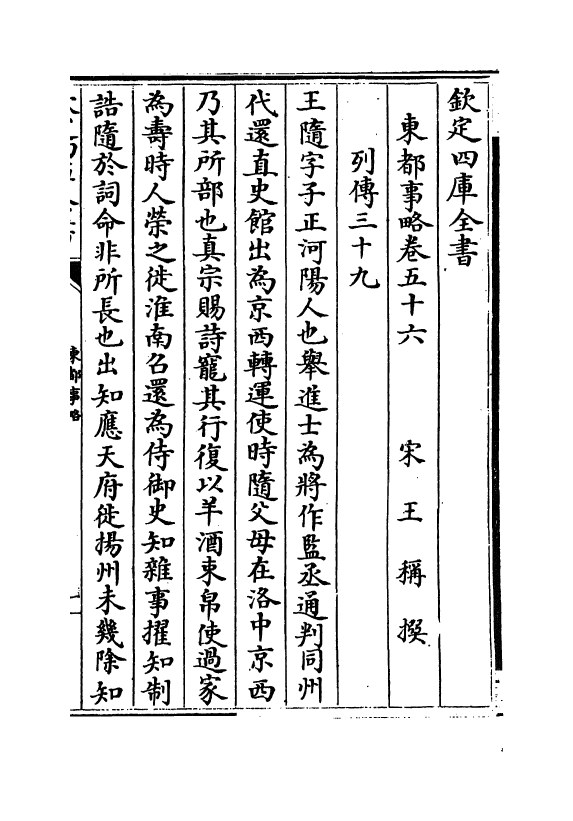 欽定四庫全書
東都事略卷五十六　宋　王　稱　撰
列傳三十九
王隨字子正河陽人也舉進士為將作監丞通判同州
代還直史館出為京西轉運使時隨父母在洛中京西
乃其所部也真宗賜詩寵其行復以羊酒束帛使過家
為壽時人榮之徙淮南召還為侍御史知雜事擢知制
誥隨於詞命非所長也出知應天府徙揚州未幾除知
東都事略